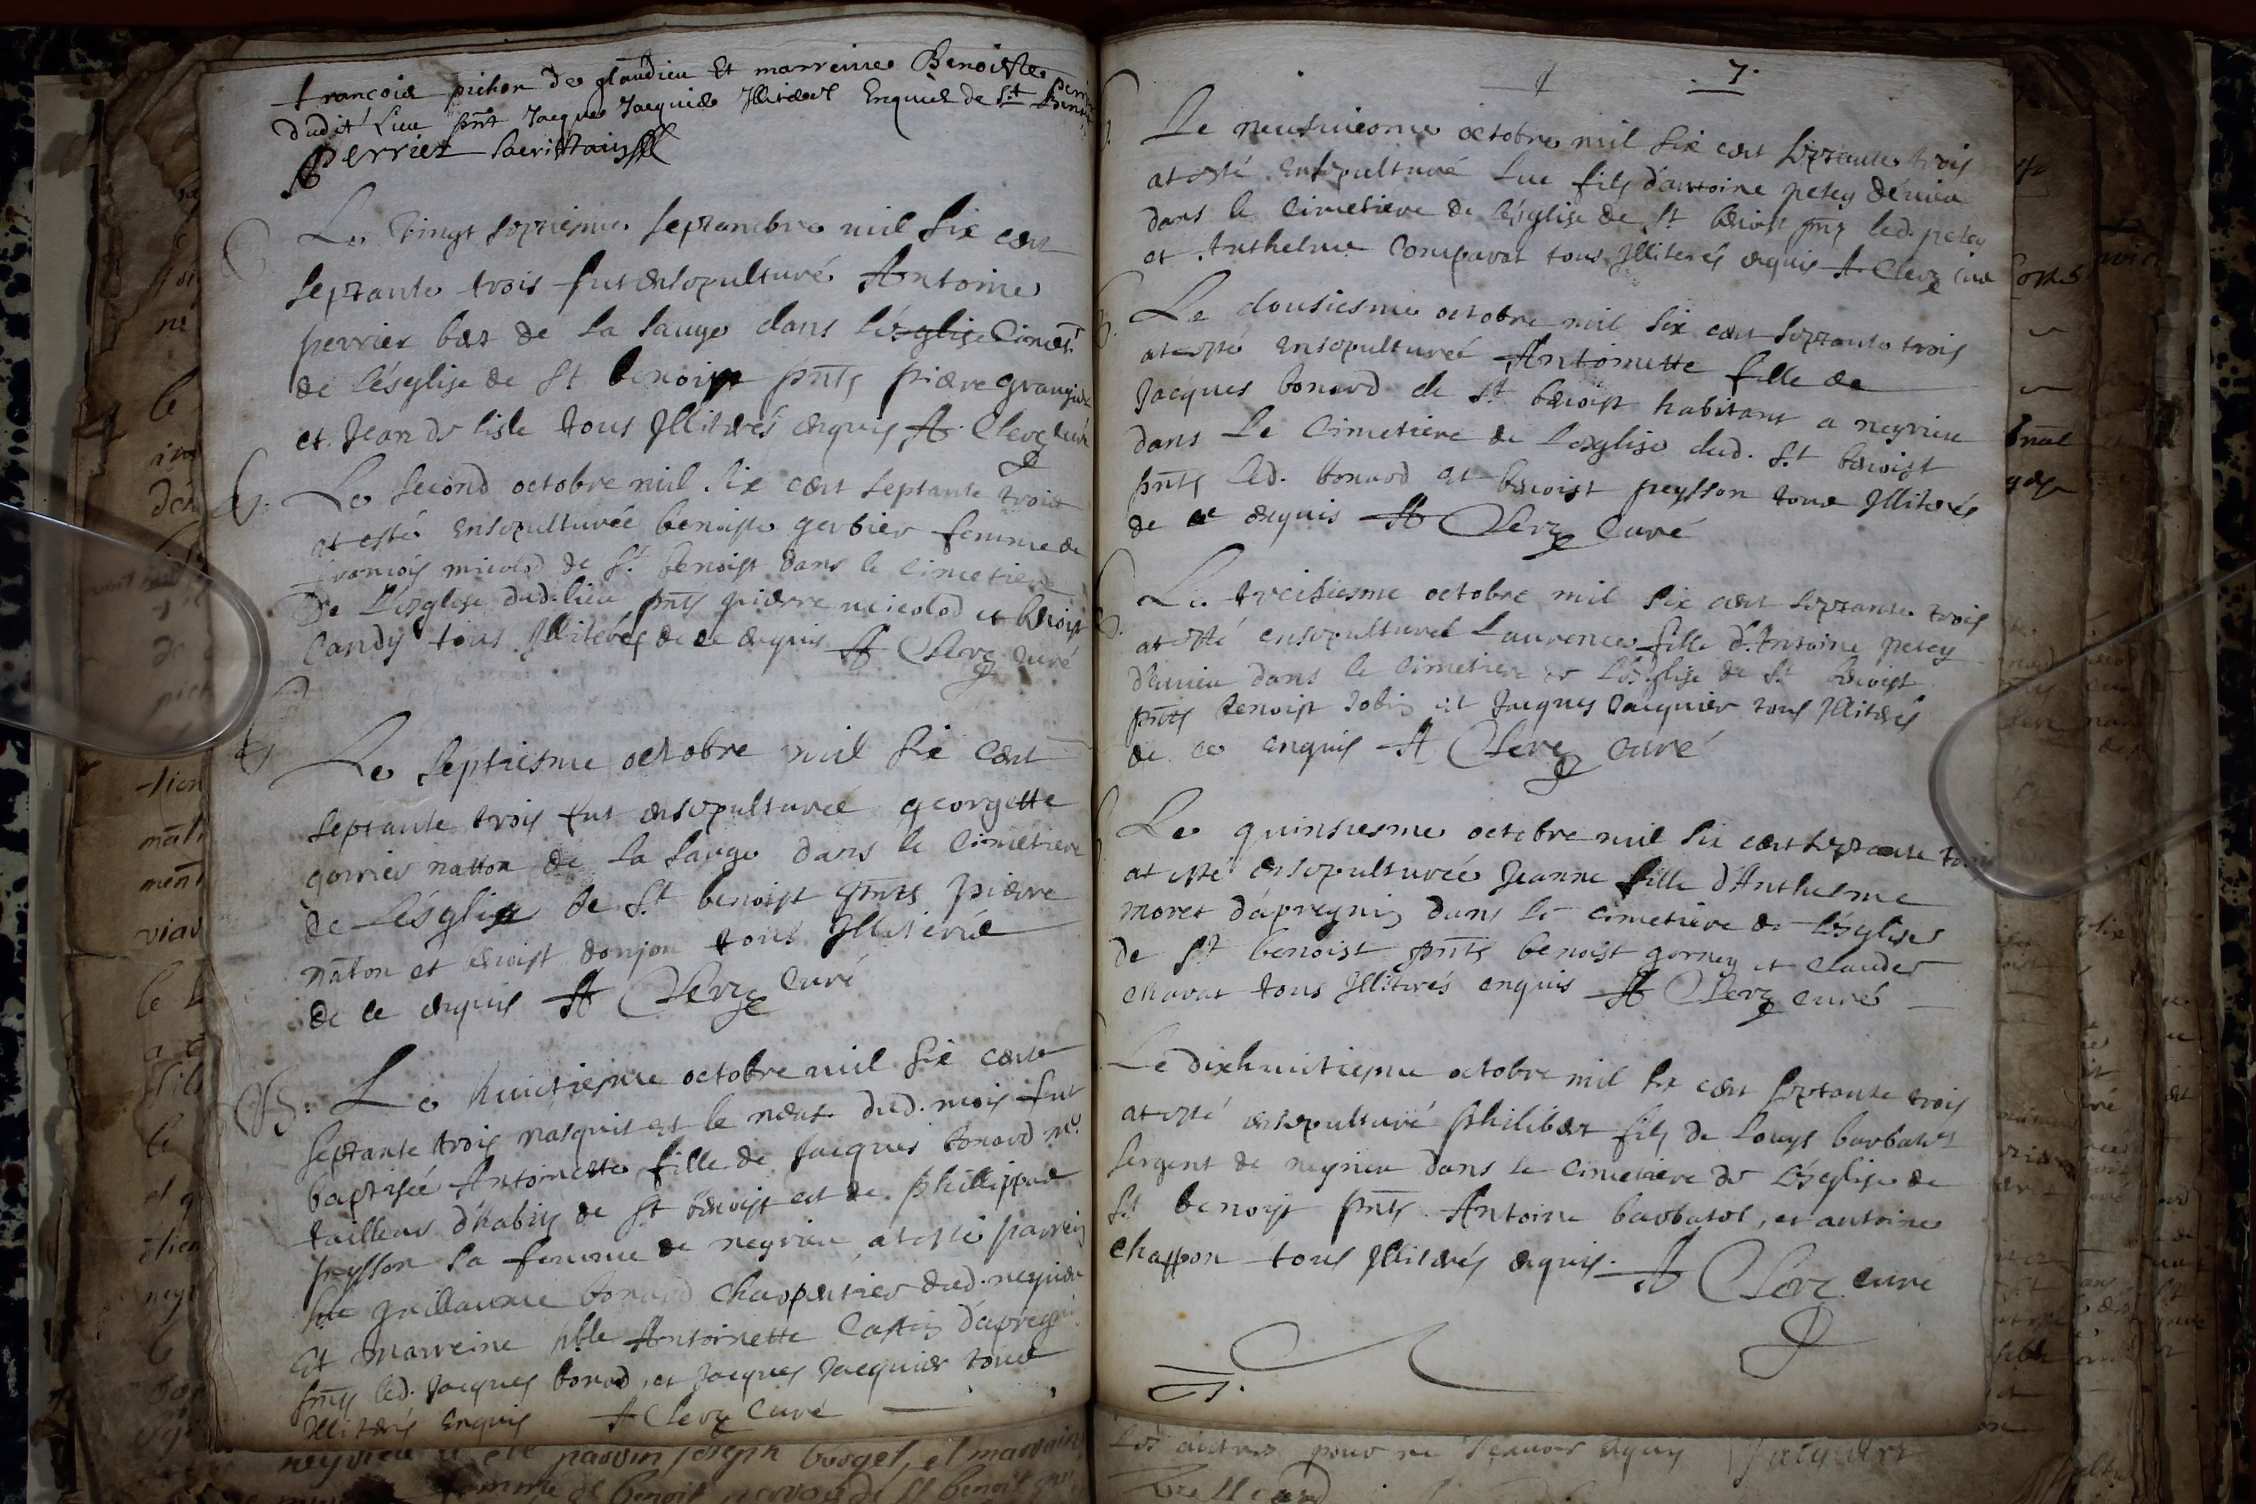 françois pichon de glandieu Et marreine Benoiste Perrier
dudit Lieu pñt Jacques Jacquier Illiterez Enquis de St Benoist
Perrier Sacristain
Le Vingt septiesme septambre mil six cent
septante trois fut ensepulturé Antoine
perrier bas de la sauge dans léglise Cimet.
de Léglise de St benoist pñts piere
et Jean de lisle tous Illiterés enquis A Clerc curé
Le second octobre mil six cent septante trois
at esté Ensepulturée benoiste gerbier femme de
françois micolod de St benoist dans le Cimetiere
De Léglise dud. lieu pñts pierre micolod et benoist
Candy tous Illiterés de ce enquis A Clerc curé
Le septiesme octobre mil six cent
septante trois fut ensepulturée georgette
gorrier natton de la sauge dans le Cimetiere
de Léglise de St benoist pñts pierre
naton et benoist donjon tous Illiterés
de ce enquis A Clerc curé
B. Le huictiesme octobre mil six cent
septante trois nasquit et le neuf dud. mois fut
baptisée Antoinette fille de Jacques bonard me.
tailleur d'habits de St benoist et de phillippe
peysson sa femme de neyrieu at esté parrein
hle guillaume bonard Charpentier dud. neyrieu
Et marreine hble Antoinette Castin d'apregnin
pñts led. Jacques bonard, et Jacques Jacquier tous
Illiterés Enquis A Clerc Curé
neyrieu a eté parrin joseph borgel, et marraine
femme de benoit
7.
Le neufvieome octobre mil six cent septante trois
at esté Ensepulturé Luc fils d'antoine petey
dans le Cimetiere de léglise de St benoist pñts led. petey
et Anthelme Comparat tous Illiterés enquis A Clerc curé
Le dousiesme octobre mil six cent septante trois
at esté Ensepulturée Antoinette fille de
Jacques bonard de St benoist habitant a neyrieu
dans Le Cimetiere de Léglise dud. St benoist
pñts led. bonard et benoist peysson tous Illiterés
de ce enquis A Clerc Curé
Le treisiesme octobre mil six cent septante trois
at esté ensepulturée Laurence fille d'Antoine petey
dans le Cimetiere de Léglise de St benoist
pñts benoist et Jacques Jacquier tous Illiterés
de ce enquis A Clerc curé
Le quinsiesme octobre mil six cent septante trois
at esté ensepulturée Jeanne fille d'Anthelme
moret d'apregnin dans le cimetiere de Léglise
de St benoist pñts benoist gorney et Claude
chavat tous Illiterés enquis A Clerc curé
Le dixhuictiesme octobre mil six cent septante trois
at esté ensepulturé philibert fils de Louys barbatot
sergent de neyrieu dans le Cimetiere de Léglise de
St benoist pñts Antoine barbatot, et antoine
chappon tous Illiterés enquis. A Clerc curé
Les autres pour ne scavoir enquis